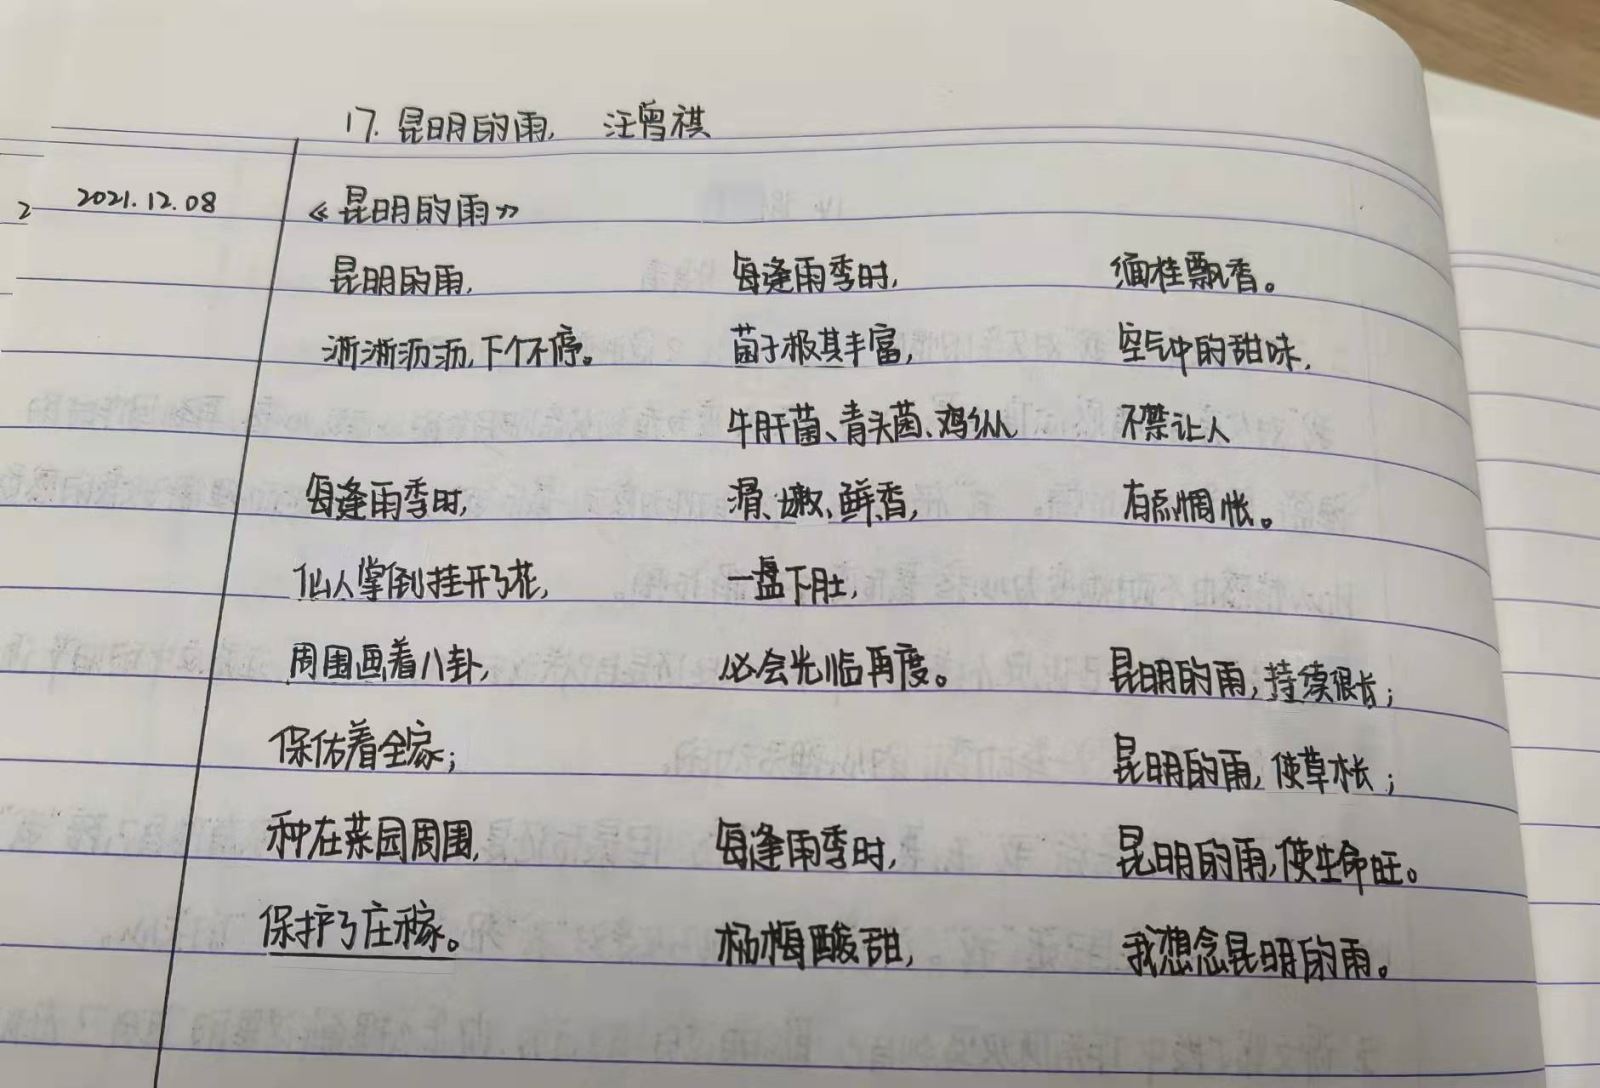 17. 昆明的雨, 汪曾祺
2
2021.12.08
《昆明的雨》
昆明的雨,
淅淅沥沥,下个不停。
每逢雨季时,
仙人掌倒挂开了花,
周围画着八卦,
保佑着全家;
种在菜园周围,
保护了庄稼。
每逢雨季时,
菌子极其丰富,
牛肝菌、青头菌、鸡纵
滑、嫩、鲜香,
一盘下肚,
必会光临再度。
每逢雨季时,
杨梅酸甜,
缅桂飘香。
空气中的甜味,
不禁让人
有点惆怅。
昆明的雨,持续很长;
昆明的雨,使草木长;
昆明的雨,使生命旺。
我想念昆明的雨。